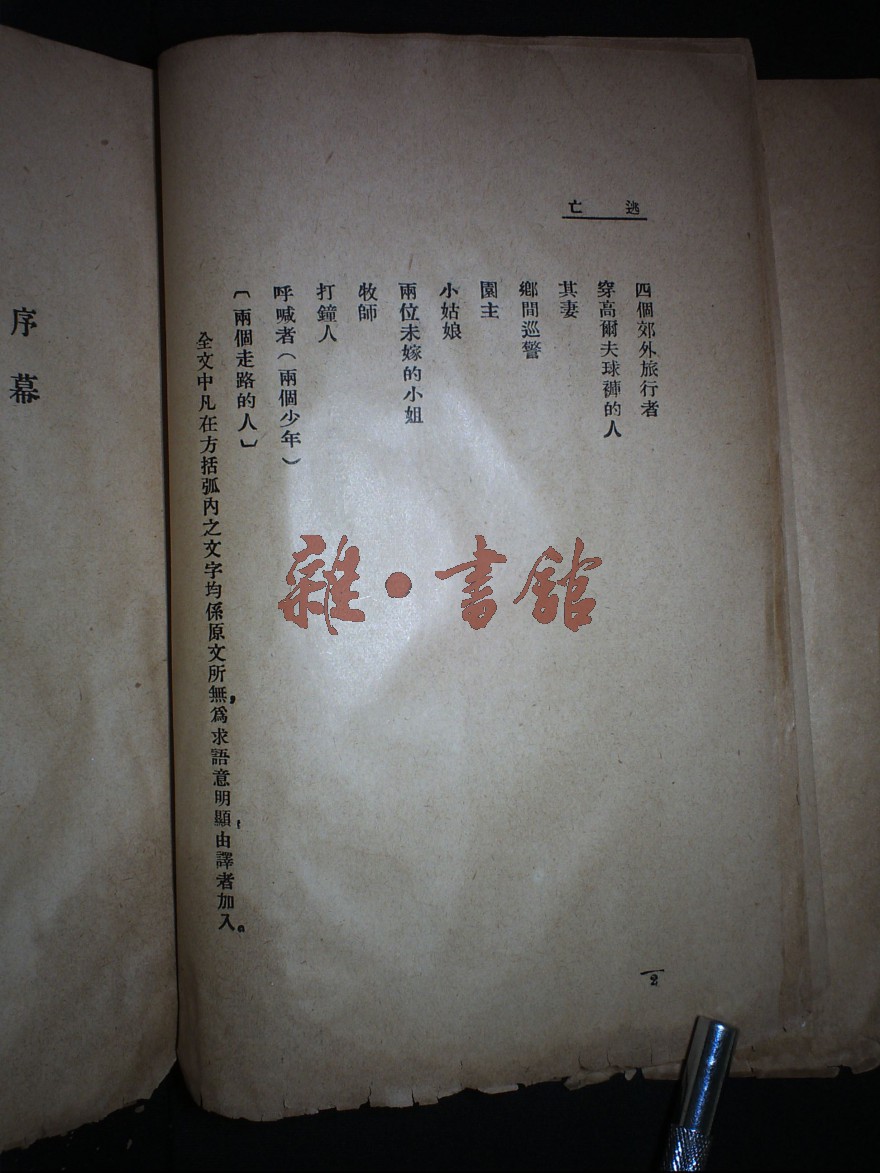 逃亡
四個郊外旅行者
穿高爾夫球褲的人
其妻
鄉間巡警
園主
小姑娘
兩位未嫁的小姐
牧師
打鐘人
呼喊者(兩個少年)
〔兩個走路的人〕
全文中凡在方括弧內之文字均係原文所無,爲求語意明顯,由譯者加入。
2
序幕
雜·書館